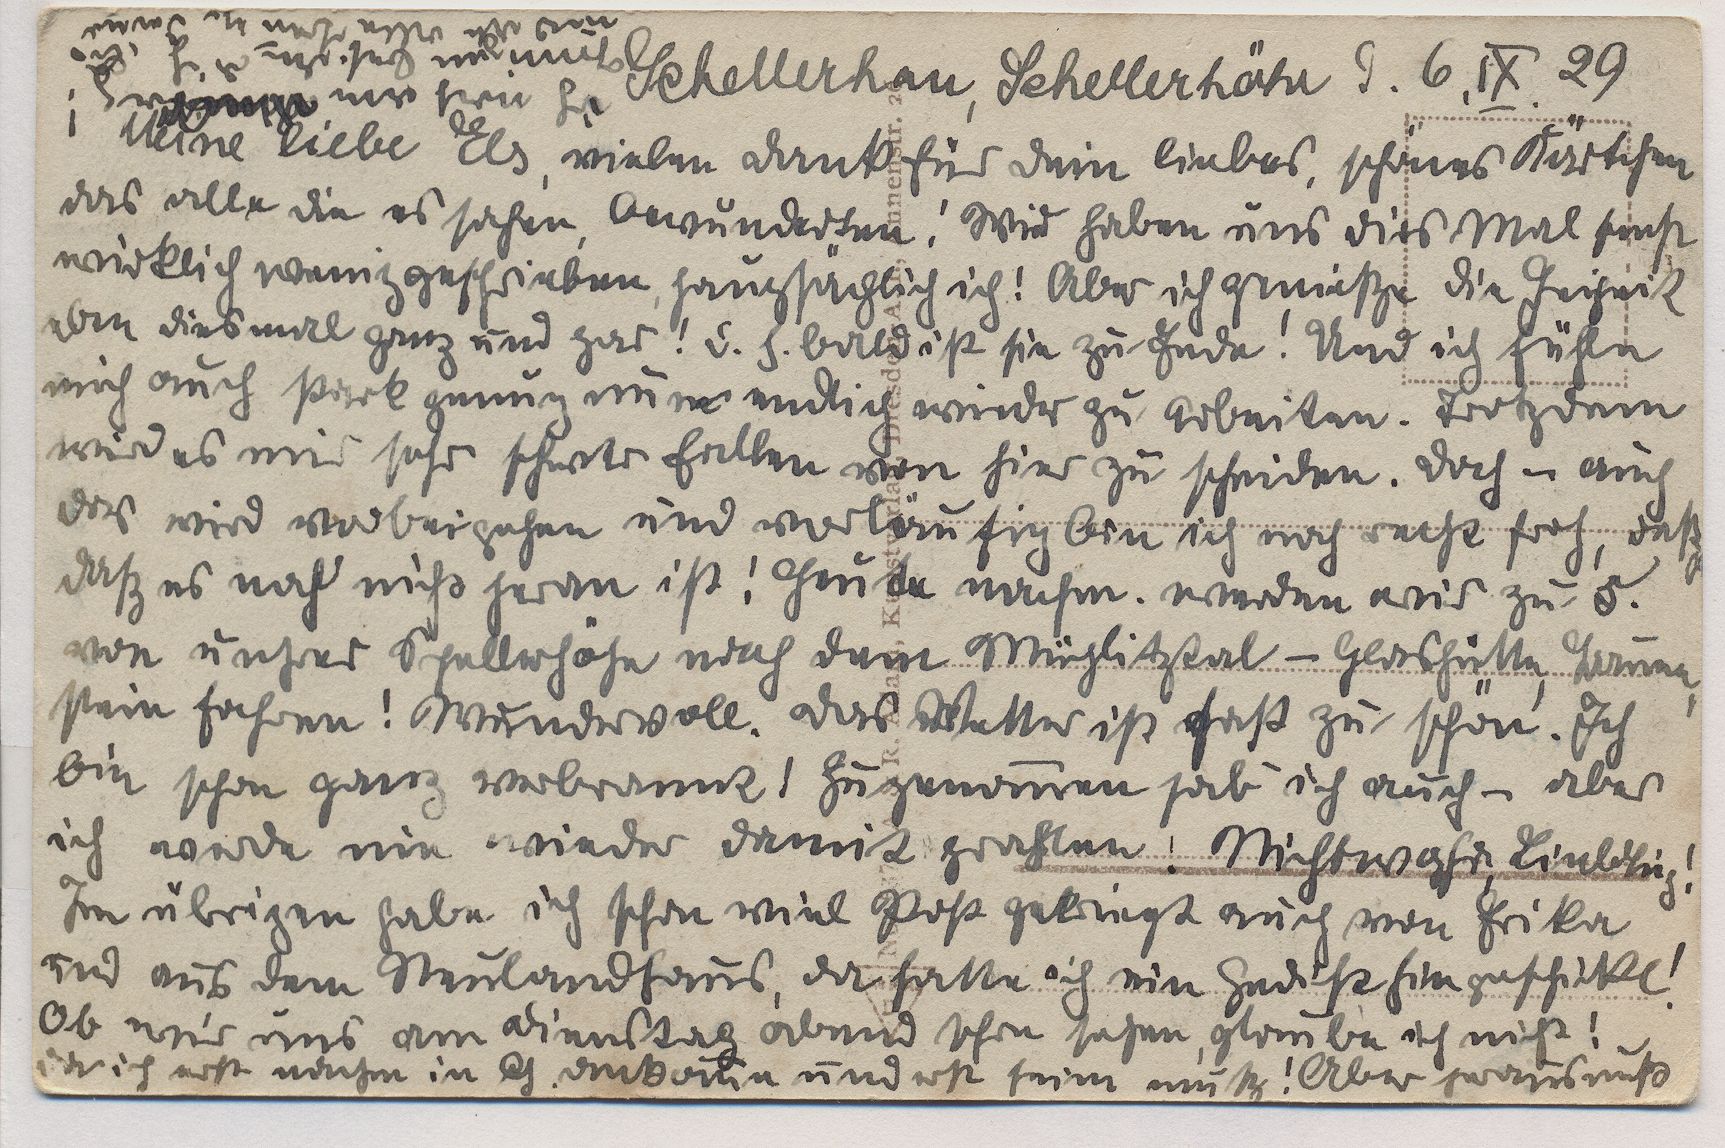 Schellerhau, Schellerhöhe d. 6. IX. 29
Meine liebe Els, vielen Dank für Dein liebes, schönes Kärtchen
das alle die es sahen, bewunderten! Wir haben uns dies Mal sonst
wirklich wenig geschrieben, hauptsächlich ich! Aber ich genieße die Freiheit
eben diesmal ganz und gar! d. h. bald ist sie zu Ende! Und ich fühle
mich auch stark genug nun endlich wieder zu arbeiten. Trotzdem
wird es mir sehr schwer fallen von hier zu scheiden. Doch – auch
das wird vorbeigehen und vorläufig bin ich noch recht froh, daß
daß es noch nicht heran ist! Heute nachm. werden wir zu 5.
von unsrer Schellerhöhe nach dem Müglitztal – Glashütte, Lauen,
stein fahren! Wundervoll. Das Wetter ist fast zu schön. Ich
bin schon ganz verbrannt! Zugenommen hab ich auch – aber
ich werde nie wieder damit prahlen! Nichtwahr, Liebling!
Im übrigen habe ich schon viel Post gekriegt auch von Erika
und aus dem Neulandhaus, da hatte ich ein Gedicht hingeschickt!
Ob wir uns am Dienstag abend schon sehen, glaube ich nicht!
da ich erst nachm in Ch. ankomme und erst heim muß! Aber